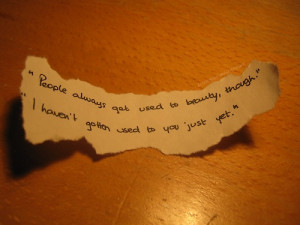 "People always get used to beauty, though."
"I haven't gotten used to you just yet."